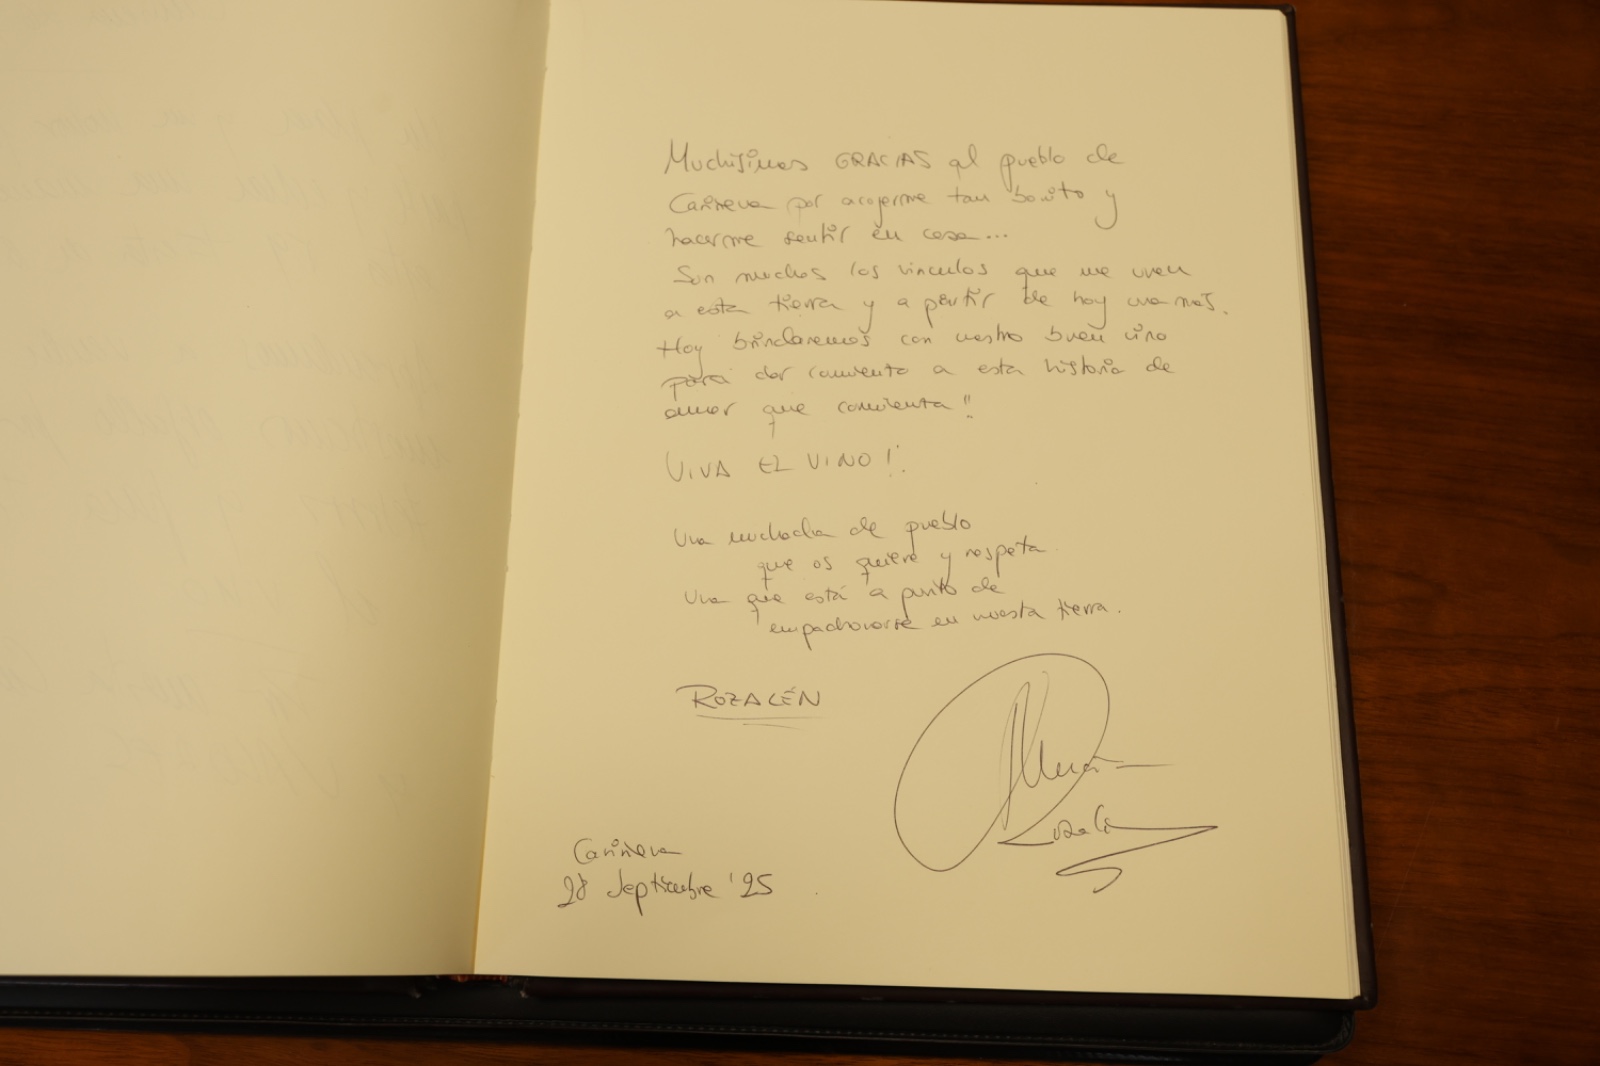 Muchísimas GRACIAS al pueblo de
Cariñena por acogerme tan bonito y
hacerme sentir en casa...
Son muchos los vínculos que me unen
a esta tierra y a partir de hoy una más.
Hoy brindaremos con vuestro buen vino
para dar comienzo a esta historia de
amor que comienza!!
VIVA EL VINO!!
Una muchacha de pueblo
que os quiere y respeta
Una que está a punto de
en vuestra tierra.
ROZALÉN
Cariñena
28 Septiembre '25